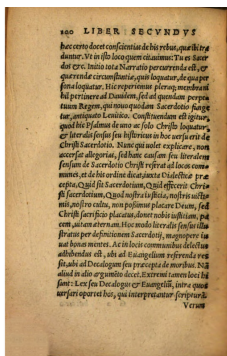 200 LIBER SECVNDVS
hæc certo docet conscientias de his rebus, quæ hi tra
duntur. Vt in isto loco quem citauimus: Tu es Sacer
dos &c. Initio tota Narratio percurrenda est, &
quærendæ circunstantiæ, quis loquatur, de qua per
sona loquatur. Hic reperiunt pleraq; membra ni
hil pertinere ad Dauidem, sed ad quendam perpe
tuum Regem, qui nouo quodam Sacerdotio funge
tur, antiquato Leuitico. Constituendum est igitur,
quod hic Psalmus de uno ac solo Christo loquatur,
& literalis sensus seu historicus in hoc uersu erit de
Christi Sacerdotio. Nunc qui uolet explicare, non
accersat allegorias, sed hanc causam seu literalem
sensum de Sacerdotio Christi referat ad locos com
munes, et de his ordine dicat, iuxta Dialecticæ præ
cepta, Quid sit Sacerdotium, Quid effecerit Chri
sti sacerdotium, Quod nostra iustitia, nostris uicti
mis, nostro cultu, non possimus placare Deum, sed
Christi sacrificio placatus, donet nobis iustitiam, pa
cem, uitam æternam. Hoc modo literalis sensus illu
stratus per definitionem Sacerdotij, magnopere iu
uat bonas mentes. Ac in locis communibus delectus
adhibendus est, ubi ad Euangelium referenda res
sit, ubi ad Decalogum seu præcepta de moribus. Ni
aliud in alio argumēto decet. Extremi tamen loci hi
sunt: Lex seu Decalogus & Euangelium, intra quos
uersari oportet hos, qui interpretantur scripturā.
Verum